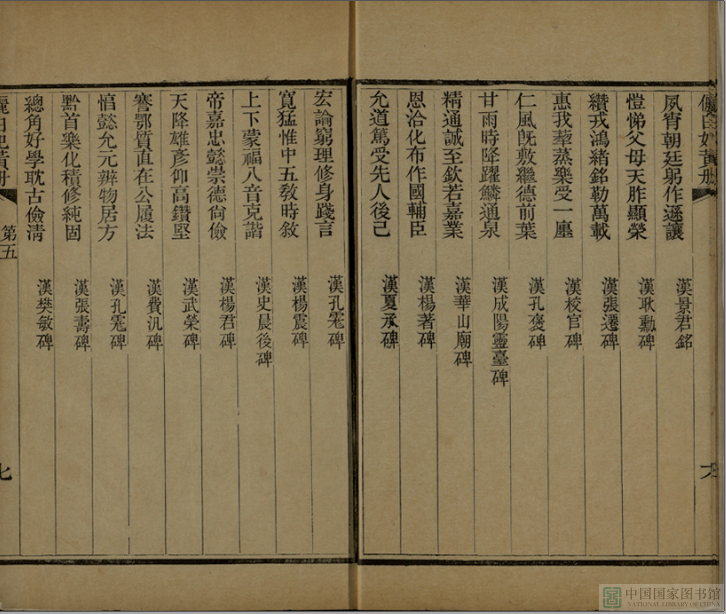 夙宵朝廷躬作遜讓 漢景君銘
愷悌父母天胙顯榮 漢耿勳碑
纘戎鴻緒銘勒萬載 漢張遷碑
惠我犂蒸樂受一廛 漢校官碑
仁風旣敷繼德前葉 漢孔褒碑
甘雨時降躍鱗通泉 漢成陽靈臺碑
精通誠至欽若嘉業 漢華山廟碑
恩洽化布作國輔臣 漢楊著碑
允道篤受先人後己 漢夏承碑
宏論窮理修身踐言 漢孔宙碑
寬猛惟中五敎時敘 漢楊震碑
上下蒙福八音克諧 漢史晨後碑
帝嘉忠懿崇德尙儉 漢楊君碑
天降雄彥仰高鑽堅 漢武榮碑
謇鄂質直在公履法 漢費汎碑
悁懿允元辨物居方 漢孔宙碑
黔首樂化積修純固 漢張壽碑
總角好學耽古儉淸 漢樊敏碑
第五
七
中国国家图书馆
NATIONAL LIBRARY OF CHINA